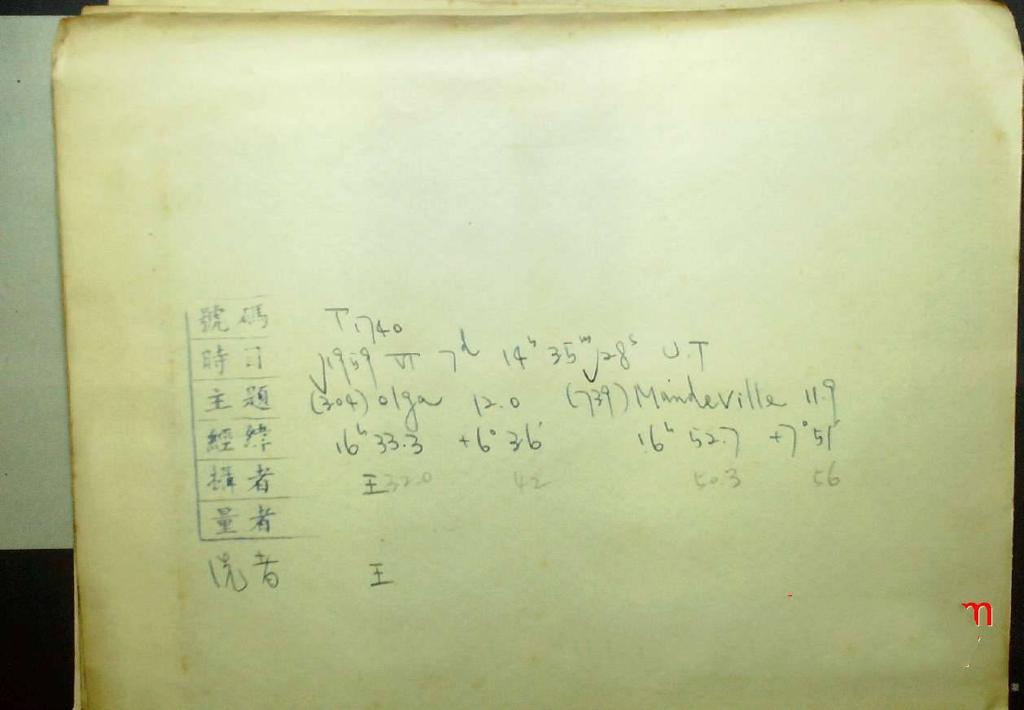 號碼 T1740
時日 1959 VI 7d 14h 35m 28s U.T
主題 (304) Olga 12.0 (739) Mandeville 11.9
經緯 16h 33.3 +6° 36' 16h 52.7 +7° 51'
攝者 王 32.0 42 50.3 56
量者
洗者 王
m